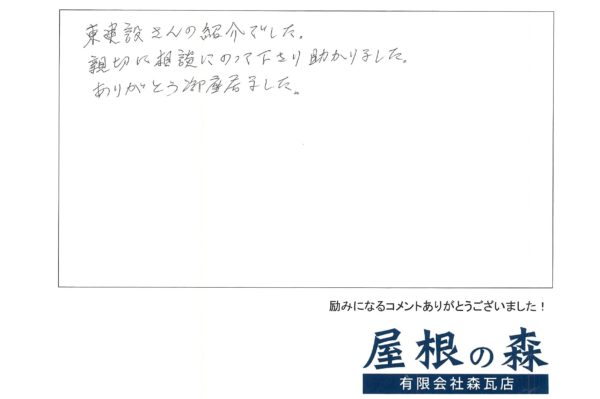 東建設さんの紹介でした。
親切に相談にのって下さり助かりました。
ありがとう御座居ました。
励みになるコメントありがとうございました！
屋根の森
有限会社森瓦店